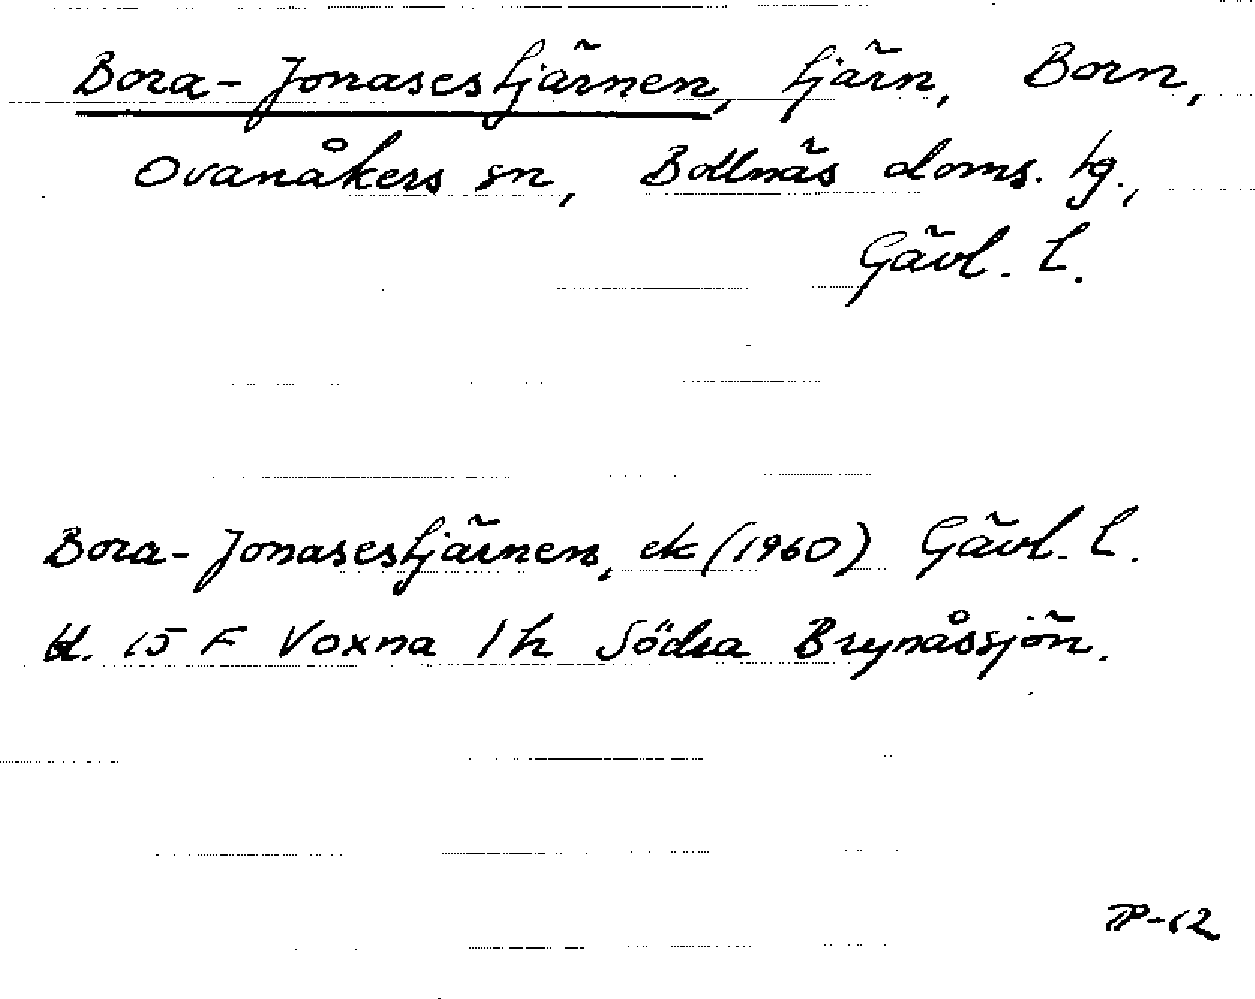 Bora-Jonasestjärnen, tjärn, Born,
Ovanåkers sn, Bollnäs doms. lg.,
Gävl. l.
Bora-Jonasestjärnen, ek (1960) Gävl. l.
bl. 15 F Voxna 1 h Södra Brynåssjön.
TP-62